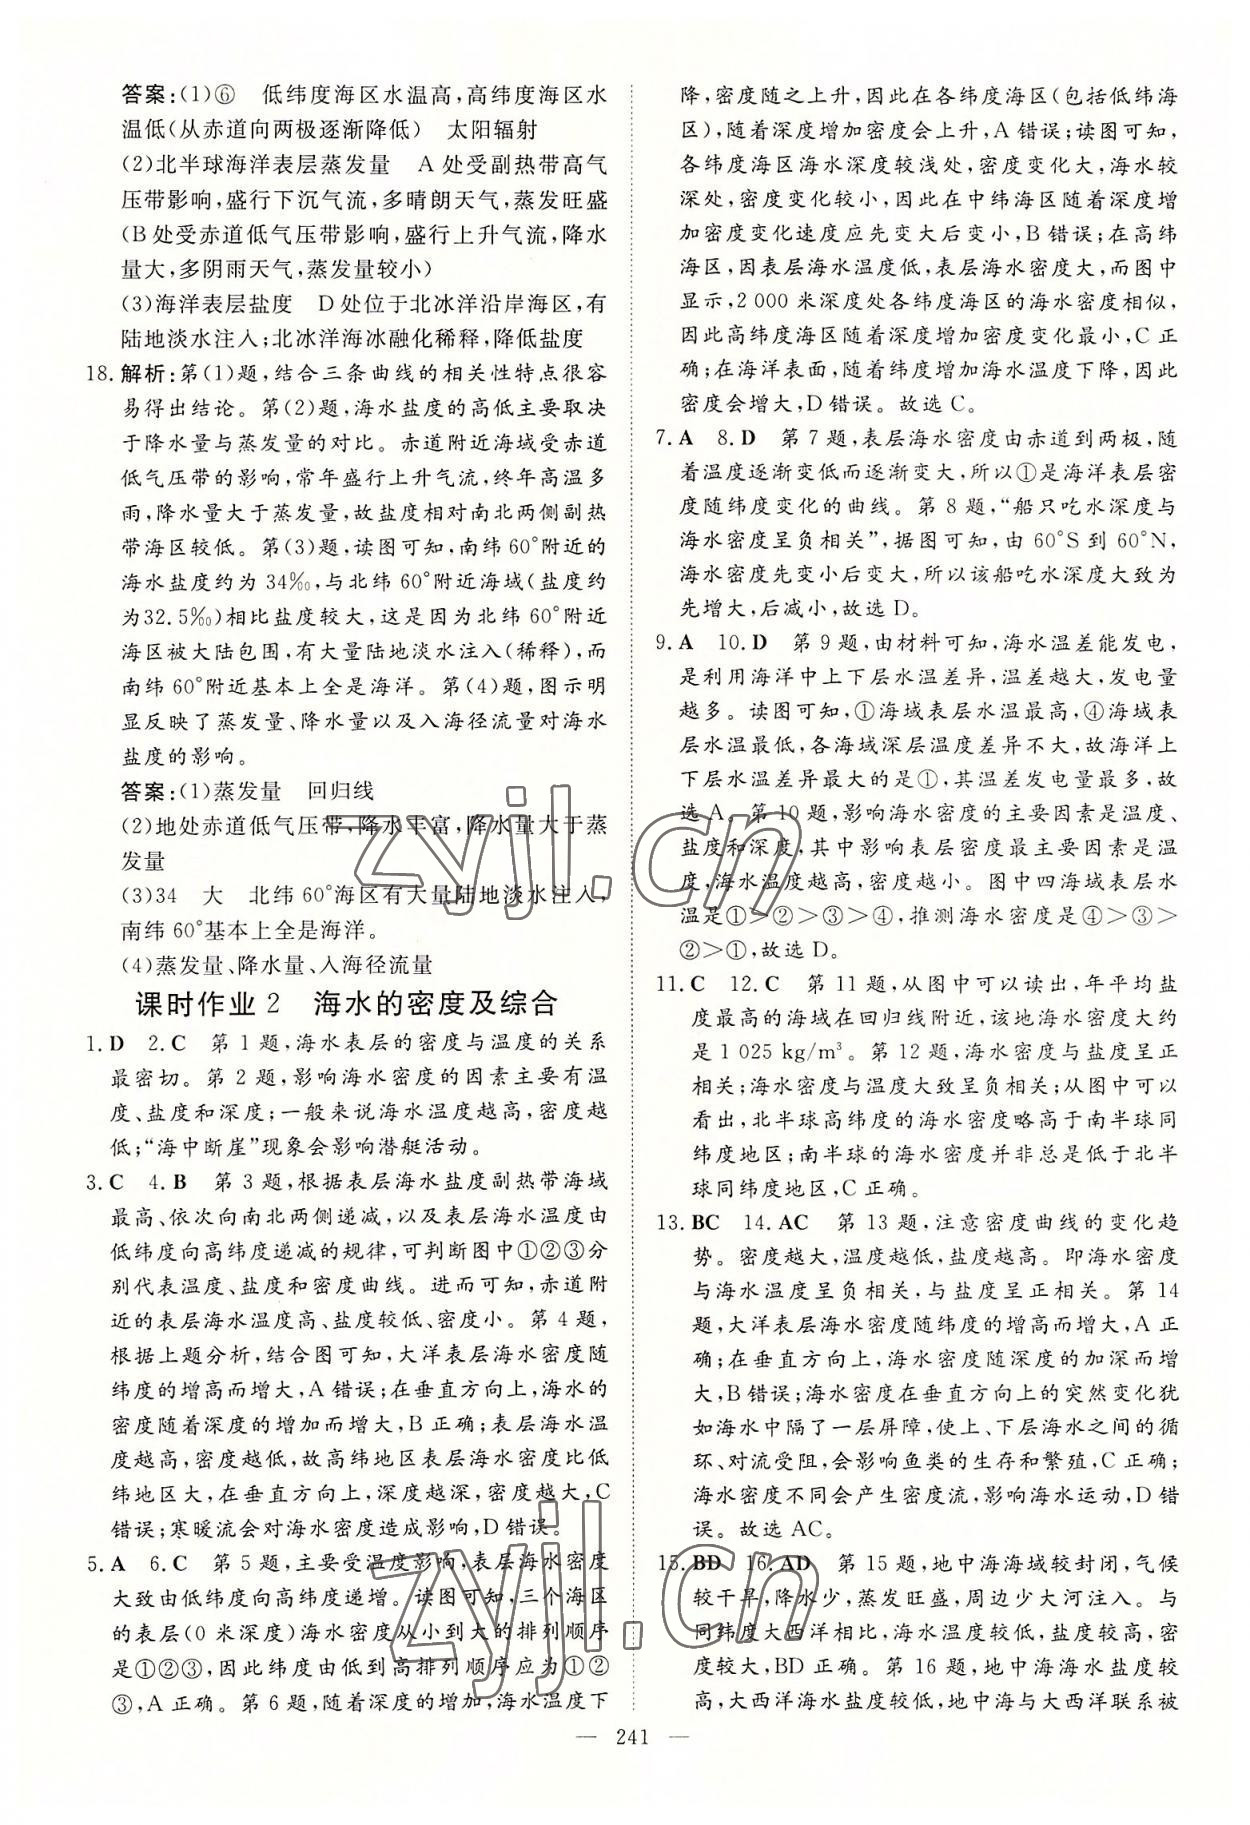 答案:(1)⑥　低纬度海区水温高,高纬度海区水
温低(从赤道向两极逐渐降低)　太阳辐射
(2)北半球海洋表层蒸发量　A 处受副热带高气
压带影响,盛行下沉气流,多晴朗天气,蒸发旺盛
(B 处受赤道低气压带影响,盛行上升气流,降水
量大,多阴雨天气,蒸发量较小)
(3)海洋表层盐度　D 处位于北冰洋沿岸海区,有
陆地淡水注入;北冰洋海冰融化稀释,降低盐度
18. 解析:第(1)题,结合三条曲线的相关性特点很容
易得出结论。第(2)题,海水盐度的高低主要取决
于降水量与蒸发量的对比。赤道附近海域受赤道
低气压带的影响,常年盛行上升气流,终年高温多
雨,降水量大于蒸发量,故盐度相对南北两侧副热
带海区较低。第(3)题,读图可知,南纬60°附近的
海水盐度约为 34‰,与北纬 60°附近海域(盐度约
为32.5‰)相比盐度较大,这是因为北纬 60°附近
海区被大陆包围,有大量陆地淡水注入(稀释),而
南纬60°附近基本上全是海洋。第(4)题,图示明
显反映了蒸发量、降水量以及入海径流量对海水
盐度的影响。
答案:(1)蒸发量　回归线
(2)地处赤道低气压带,降水丰富,降水量大于蒸
发量
(3)34　大　北纬60°海区有大量陆地淡水注入,
南纬60°基本上全是海洋。
(4)蒸发量、降水量、入海径流量
课时作业 2　海水的密度及综合
1. D　2. C　第 1 题,海水表层的密度与温度的关系
最密切。第 2 题,影响海水密度的因素主要有温
度、盐度和深度;一般来说海水温度越高,密度越
低;“海中断崖”现象会影响潜艇活动。
3. C　4. B　第 3 题,根据表层海水盐度副热带海域
最高、依次向南北两侧递减,以及表层海水温度由
低纬度向高纬度递减的规律,可判断图中①②③分
别代表温度、盐度和密度曲线。进而可知,赤道附
近的表层海水温度高、盐度较低、密度小。第 4 题,
根据上题分析,结合图可知,大洋表层海水密度随
纬度的增高而增大,A 错误;在垂直方向上,海水的
密度随着深度的增加而增大,B 正确;表层海水温
度越高,密度越低,故高纬地区表层海水密度比低
纬地区大,在垂直方向上,深度越深,密度越大,C
错误;寒暖流会对海水密度造成影响,D 错误。
5. A　6. C　第 5 题,主要受温度影响,表层海水密度
大致由低纬度向高纬度递增。读图可知,三个海区
的表层(0 米深度)海水密度从小到大的排列顺序
是①②③,因此纬度由低到高排列顺序应为①②
③,A 正确。第 6 题,随着深度的增加,海水温度下
降,密度随之上升,因此在各纬度海区(包括低纬海
区),随着深度增加密度会上升,A 错误;读图可知,
各纬度海区海水深度较浅处,密度变化大,海水较
深处,密度变化较小,因此在中纬海区随着深度增
加密度变化速度应先变大后变小,B 错误;在高纬
海区,因表层海水温度低,表层海水密度大,而图中
显示,2 000 米深度处各纬度海区的海水密度相似,
因此高纬度海区随着深度增加密度变化最小,C 正
确;在海洋表面,随着纬度增加海水温度下降,因此
密度会增大,D 错误。故选 C。
7. A　8. D　第 7 题,表层海水密度由赤道到两极,随
着温度逐渐变低而逐渐变大,所以①是海洋表层密
度随纬度变化的曲线。第 8 题,“船只吃水深度与
海水密度呈负相关”,据图可知,由 60°S 到 60°N,
海水密度先变小后变大,所以该船吃水深度大致为
先增大,后减小,故选 D。
9. A　10. D　第 9 题,由材料可知,海水温差能发电,
是利用海洋中上下层水温差异,温差越大,发电量
越多。读图可知,①海域表层水温最高,④海域表
层水温最低,各海域深层温度差异不大,故海洋上
下层水温差异最大的是①,其温差发电量最多,故
选 A。第 10 题,影响海水密度的主要因素是温度、
盐度和深度,其中影响表层密度最主要因素是温
度,海水温度越高,密度越小。图中四海域表层水
温是①>②>③>④,推测海水密度是④>③>
②>①,故选 D。
11. C　12. C　第 11 题,从图中可以读出,年平均盐
度最高的海域在回归线附近,该地海水密度大约
是 1 025 kg/m³。第 12 题,海水密度与盐度呈正
相关;海水密度与温度大致呈负相关;从图中可以
看出,北半球高纬度的海水密度略高于南半球同
纬度地区;南半球的海水密度并非总是低于北半
球同纬度地区,C 正确。
13. BC　14. AC　第 13 题,注意密度曲线的变化趋
势。密度越大,温度越低,盐度越高。即海水密度
与海水温度呈负相关,与盐度呈正相关。第 14
题,大洋表层海水密度随纬度的增高而增大,A 正
确;在垂直方向上,海水密度随深度的加深而增
大,B 错误;海水密度在垂直方向上的突然变化犹
如海水中隔了一层屏障,使上、下层海水之间的循
环、对流受阻,会影响鱼类的生存和繁殖,C 正确;
海水密度不同会产生密度流,影响海水运动,D 错
误。故选 AC。
15. BD　16. AD　第 15 题,地中海海域较封闭,气候
较干旱,降水少,蒸发旺盛,周边少大河注入。与
同纬度大西洋相比,海水温度较低,盐度较高,密
度较大,BD 正确。第 16 题,地中海海水盐度较
高,大西洋海水盐度较低,地中海与大西洋联系被
— 241 —
zyjl.cn
zyjl.cn